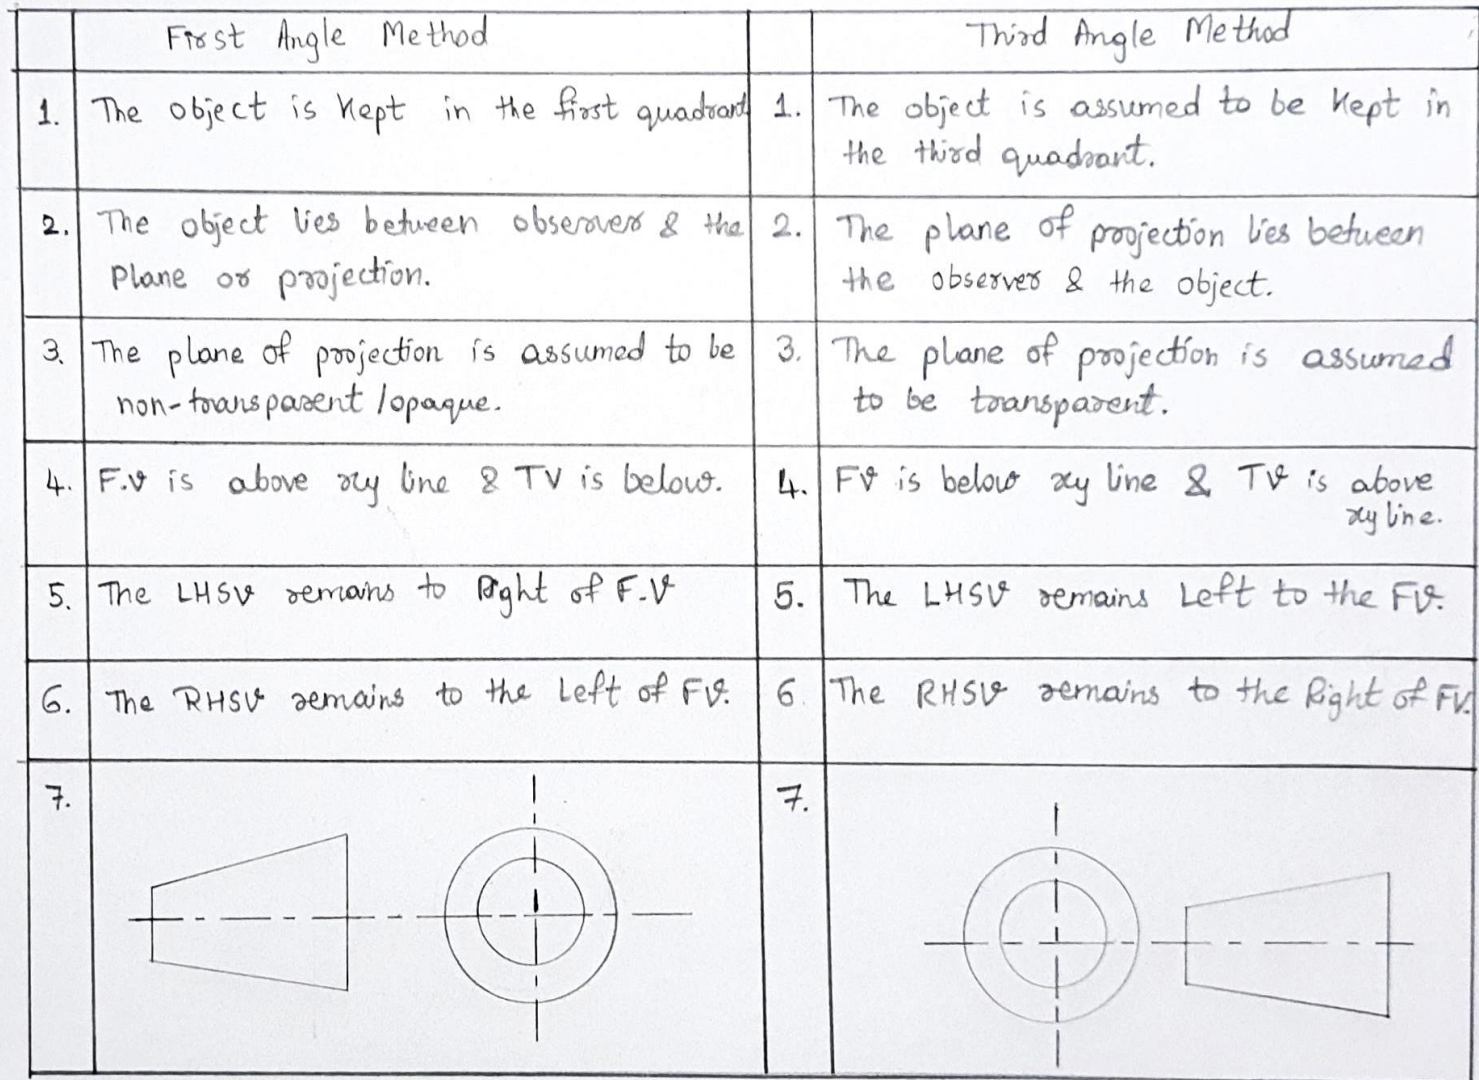 First Angle Method
Third Angle Method
1. The object is kept in the first quadrant
1. The object is assumed to be kept in
the third quadrant.
2. The object lies between observer & the
Plane or projection.
2. The plane of projection lies between
the observer & the object.
3. The plane of projection is assumed to be
non-transparent /opaque.
3. The plane of projection is assumed
to be transparent.
4. F.V is above xy line & TV is below.
4. FV is below xy line & TV is above
xy line.
5. The LHSV remains to Right of F.V
5. The LHSV remains Left to the FV.
6. The RHSV remains to the Left of FV.
6. The RHSV remains to the Right of FV.
7.
7.